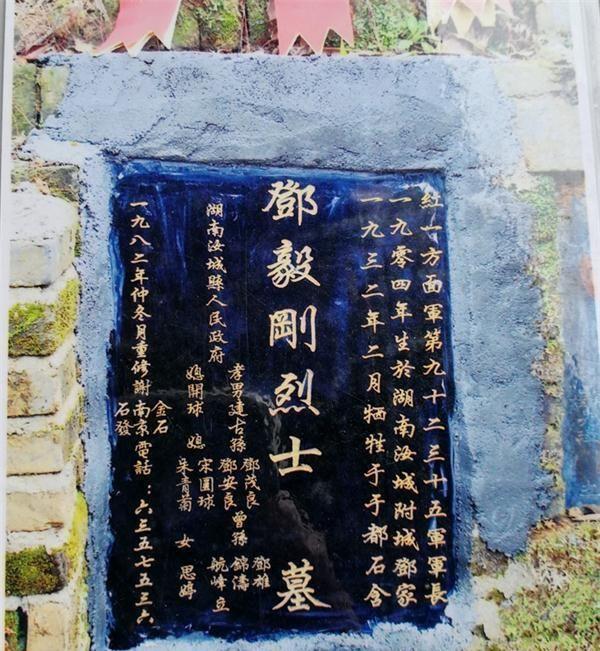 紅一方面軍第九十二三十五軍軍長
一九零四年生於湖南汝城附城鄧家
一九三二年二月牺牲于于都石含
鄧毅剛烈士墓
湖南汝城縣人民政府
孝男建古孫 鄧茂良 鄧安良 曾孫 鄧雄 錦濤
媳開球 媳 宋圓球 朱青蘭 女 思婷 航峰 立
一九八二年仲冬月重修謝南京電話：六三五七五三六
金石
石發